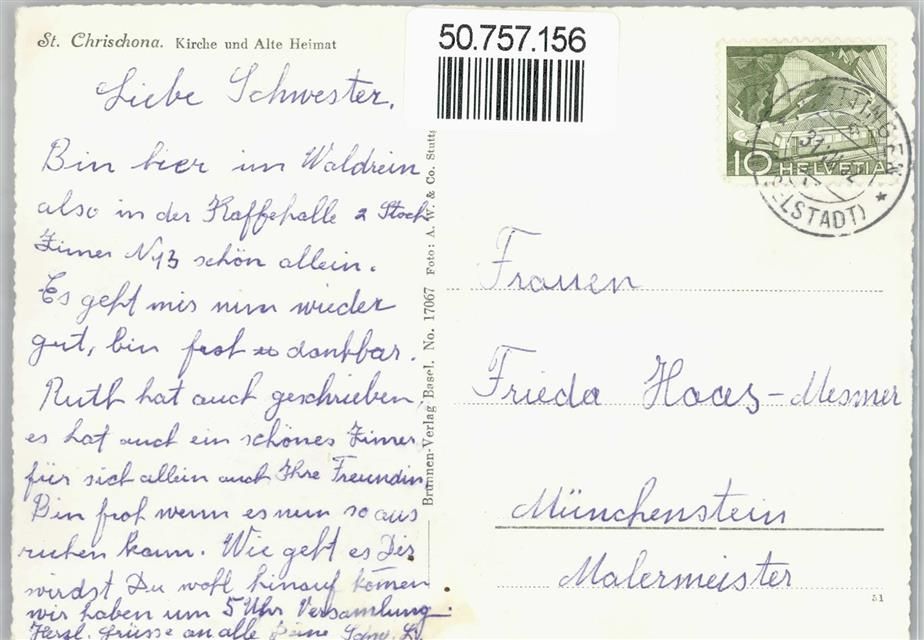 St. Chrischona. Kirche und Alte Heimat
50.757.156
Liebe Schwester.
Bin hier im Waldrein
also in der Kaffehalle 2 Stock
Zimer N 13 schön allein.
Es geht mir nun wieder
gut, bin froh u dankbar.
Ruth hat auch geschrieben,
es hat auch ein schönes Zimer
für sich allein auch Ihre Freundin
Bin froh wenn es nun so aus
ruhen kann. Wie geht es Dir
wirdst Du wohl hinauf komen
wir haben um 5 Uhr Versamlung.
Herzl. Grüsse an alle Deine Schw. L.
Brunnen-Verlag Basel. No. 17067 Foto: A. W. & Co. Stuttg
10 HELVETIA
Frauen
Frieda Haas-Mesmer
Münchenstein
Malermeister
51